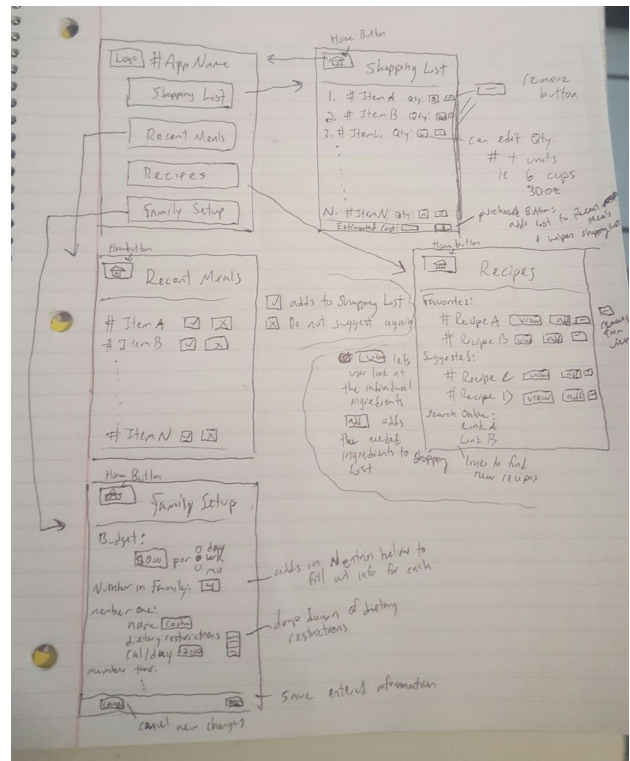 Logo # App Name
Shopping List
Recent Meals
Recipes
Family Setup
Home Button
Shopping List
1. # Item A Qty:
2. # Item B Qty:
3. # Item C, Qty:
N. # Item N Qty:
Estimated Cost:
remove
button
can edit Qty
# + units
ie. 6 cups
30oz
purchased Button:
adds list to Recent
Meals
+ wipes shopping list
Home button
Recent Meals
# Item A
# Item B
# Item N
adds to Shopping List
Do not suggest again
view lets
user look at
the individual
ingredients
add adds
the needed
ingredients to Shopping
List
Home button
Recipes
Favorites:
# Recipe A view add -
# Recipe B view add -
Suggested:
# Recipe C view add -
# Recipe D view add -
Search Online:
Link A
Link B
removes
from
links to find
new recipes
Home Button
Family Setup
Budget:
per day
wk
mo
Number in Family: 4
member one:
name
dietary restrictions
cal/day
member two:
adds in N entries below to
fill out info for each
drop down of dietary
restrictions
save entered information
cancel new changes